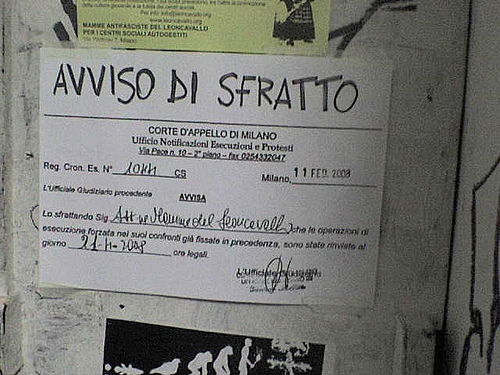 www.leoncavallo.org
MAMME ANTIFASCISTE DEL LEONCAVALLO
PER I CENTRI SOCIALI AUTOGESTITI
Milano
AVVISO DI SFRATTO
CORTE D'APPELLO DI MILANO
Ufficio Notificazioni Esecuzioni e Protesti
Via Pace n. 10 - 2° piano - fax 0254332047
Reg. Cron. Es. N° CS
Milano, 11 FEB. 2008
L'Ufficiale Giudiziario procedente
AVVISA
Lo sfrattando Sig. Mamme del Leoncavallo che le operazioni di
esecuzione forzata nei suoi confronti già fissate in precedenza, sono state rinviate al
giorno ore legali.
L'Ufficiale Giudiziario